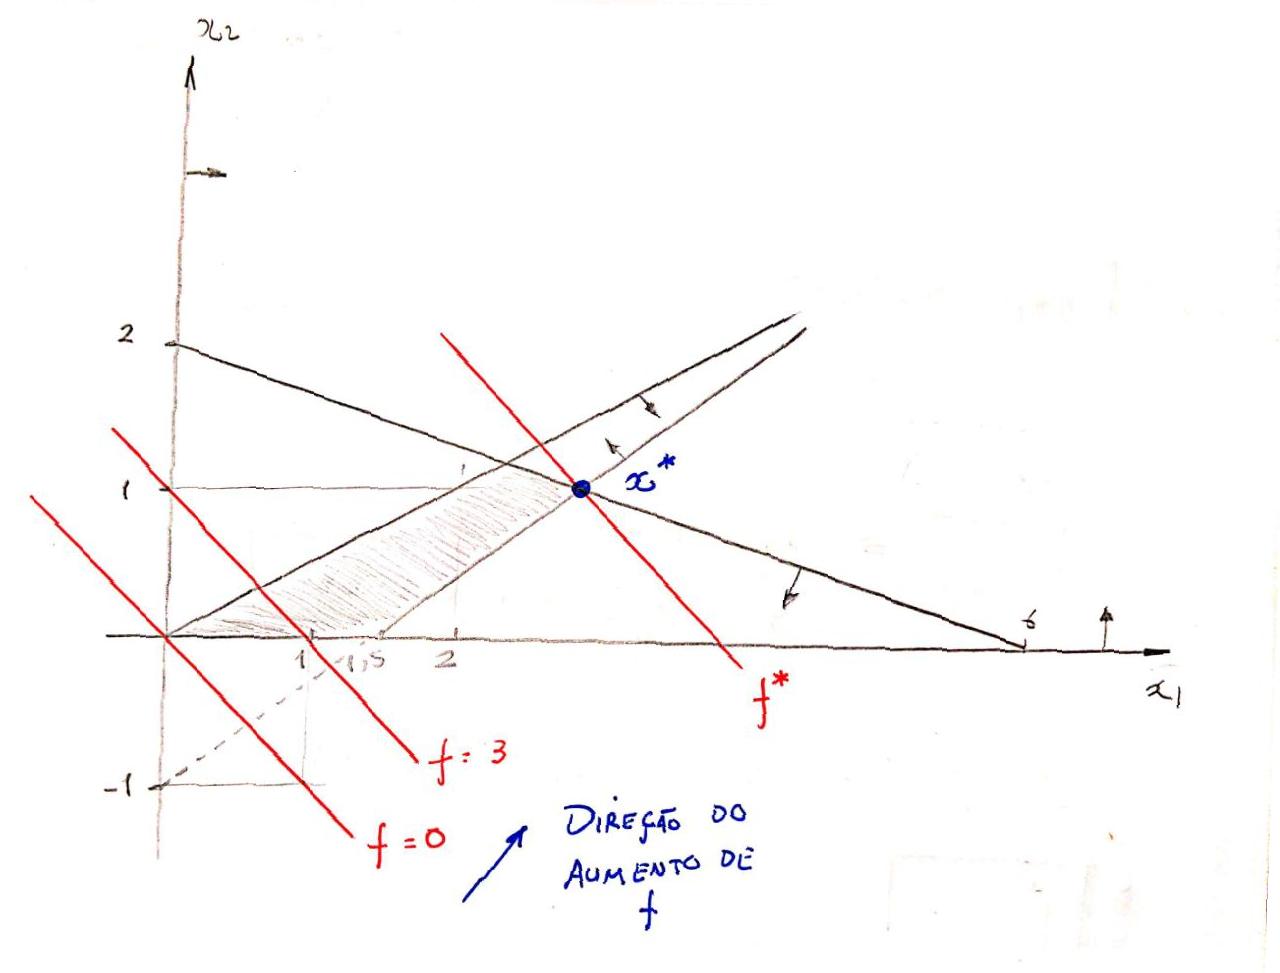 x2
2
1
1
x*
6
1
1,5
2
x1
f*
-1
f = 3
f = 0
DIREÇÃO DO
AUMENTO DE
f